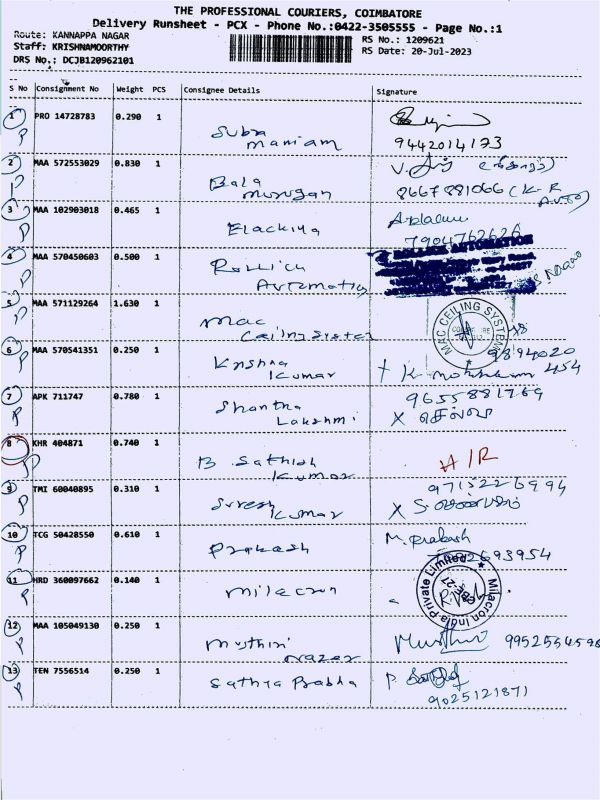 THE PROFESSIONAL COURIERS, COIMBATORE
Delivery Runsheet - PCX - Phone No.:0422-3505555 - Page No.:1
Route: KANNAPPA NAGAR
Staff: KRISHNAMOORTHY
DRS No.: DCJB120962101
RS No.: 1209621
RS Date: 20-Jul-2023
S No Consignment No Weight PCS Consignee Details Signature
1 PRO 14728783 0.290 1
Subra
maniam
9442014173
2 MAA 572553029 0.830 1
Bala
murugan
8667881066 (K-R
Auto)
3 MAA 102903018 0.465 1
Elackiya
7904762626
4 MAA 570450603 0.500 1
Rollick
Automation
ROLLICK AUTOMATION
5 MAA 571129264 1.630 1
Mac
Ceiling System
MAC CEILING SYSTEM
6 MAA 570541351 0.250 1
Krishna
Kumar
9894020
454
7 APK 711747 0.780 1
Shantha
Lakshmi
9655881769
X செல்வ
8 KHR 404871 0.740 1
B Sathish
Kumar
H/R
9 TMI 60040895 0.310 1
Suresh
Kumar
10 TCG 50428550 0.610 1
Prakash
M. Prakash
11 HRD 360097662 0.140 1
milacron
Milacron India Private Limited
12 MAA 105049130 0.250 1
Muthiri
Nazar
13 TEN 7556514 0.250 1
Sathya Prabha
9025121871